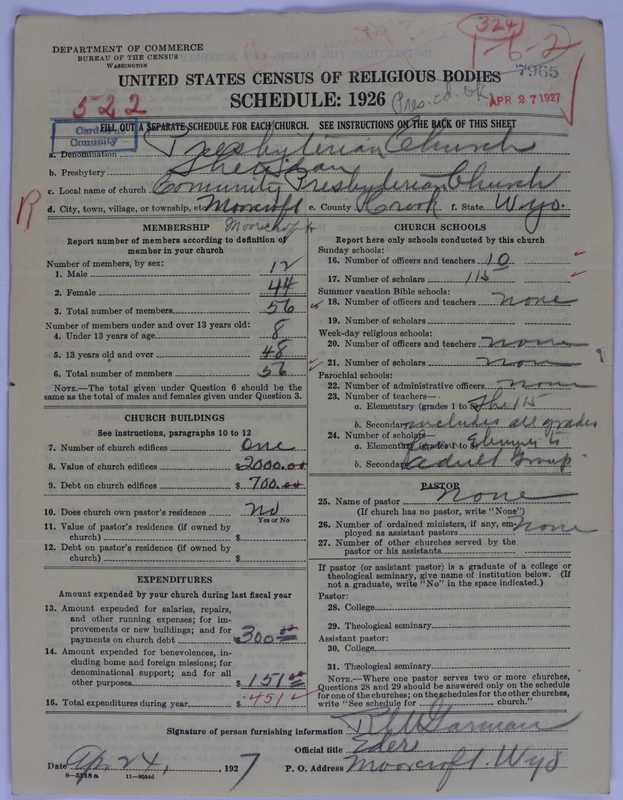 324
1-6-2
DEPARTMENT OF COMMERCE
BUREAU OF THE CENSUS
WASHINGTON
7965
UNITED STATES CENSUS OF RELIGIOUS BODIES
SCHEDULE: 1926
Pres. cd. OK
APR 27 1927
522
FILL OUT A SEPARATE SCHEDULE FOR EACH CHURCH. SEE INSTRUCTIONS ON THE BACK OF THIS SHEET
a. Denomination Presbyterian Church
b. Presbytery Sheridan
c. Local name of church Community Presbyterian Church
d. City, town, village, or township, etc. Moorcroft e. County Crook f. State Wyo.
R
Moorcroft
MEMBERSHIP
Report number of members according to definition of member in your church
Number of members, by sex:
1. Male 12
2. Female 44
3. Total number of members 56
Number of members under and over 13 years old:
4. Under 13 years of age 8
5. 13 years old and over 48
6. Total number of members 56
NOTE.—The total given under Question 6 should be the same as the total of males and females given under Question 3.
CHURCH BUILDINGS
See instructions, paragraphs 10 to 12
7. Number of church edifices one
8. Value of church edifices $2000.00
9. Debt on church edifices $700.00
10. Does church own pastor's residence no
Yes or No
11. Value of pastor's residence (if owned by church) $
12. Debt on pastor's residence (if owned by church) $
EXPENDITURES
Amount expended by your church during last fiscal year
13. Amount expended for salaries, repairs, and other running expenses; for improvements or new buildings; and for payments on church debt $300.00
14. Amount expended for benevolences, including home and foreign missions; for denominational support; and for all other purposes $151.00
15. Total expenditures during year $451
CHURCH SCHOOLS
Report here only schools conducted by this church
Sunday schools:
16. Number of officers and teachers 10
17. Number of scholars 115
Summer vacation Bible schools:
18. Number of officers and teachers none
19. Number of scholars
Week-day religious schools:
20. Number of officers and teachers none
21. Number of scholars none
Parochial schools:
22. Number of administrative officers none
23. Number of teachers—
a. Elementary (grades 1 to 8) The 115
b. Secondary includes all grades
24. Number of scholars—
a. Elementary (grades 1 to 8) to
b. Secondary adult Group
PASTOR
25. Name of pastor none
(If church has no pastor, write "None")
26. Number of ordained ministers, if any, employed as assistant pastors none
27. Number of other churches served by the pastor or his assistants
If pastor (or assistant pastor) is a graduate of a college or theological seminary, give name of institution below. (If not a graduate, write "No" in the space indicated.)
Pastor:
28. College
29. Theological seminary
Assistant pastor:
30. College
31. Theological seminary
NOTE.—Where one pastor serves two or more churches, Questions 28 and 29 should be answered only on the schedule for one of the churches; on the schedules for the other churches, write "See schedule for church."
Signature of person furnishing information
Official title Elder
Date Ap. 24, 1927 P. O. Address Moorcroft. Wyo
8-5318a 11-9094d